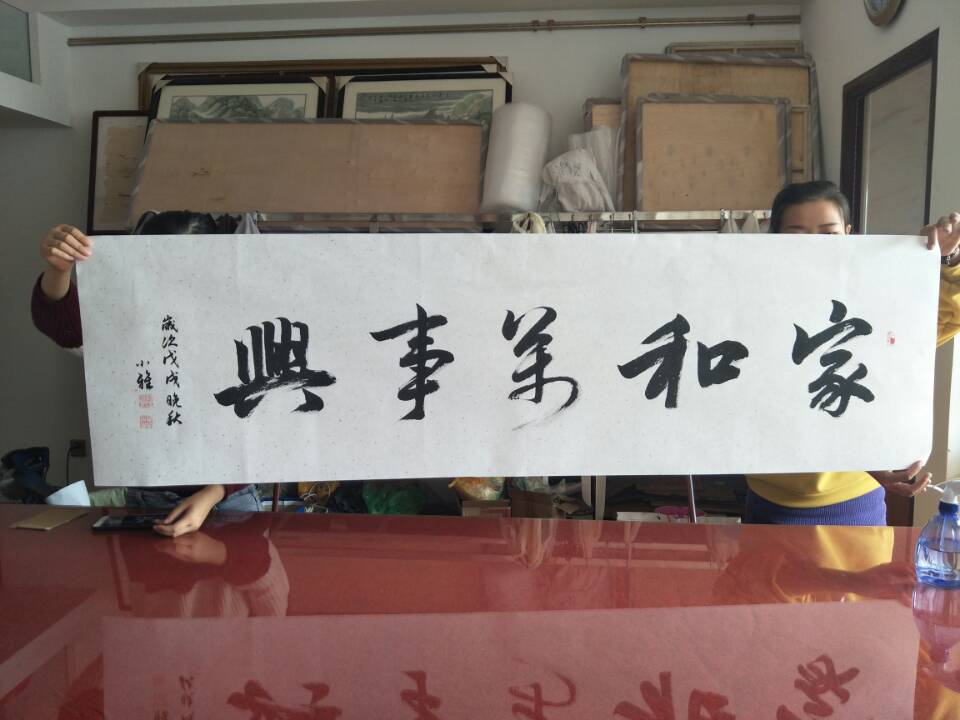 家和萬事興
歲次戊戌晚秋
小雅